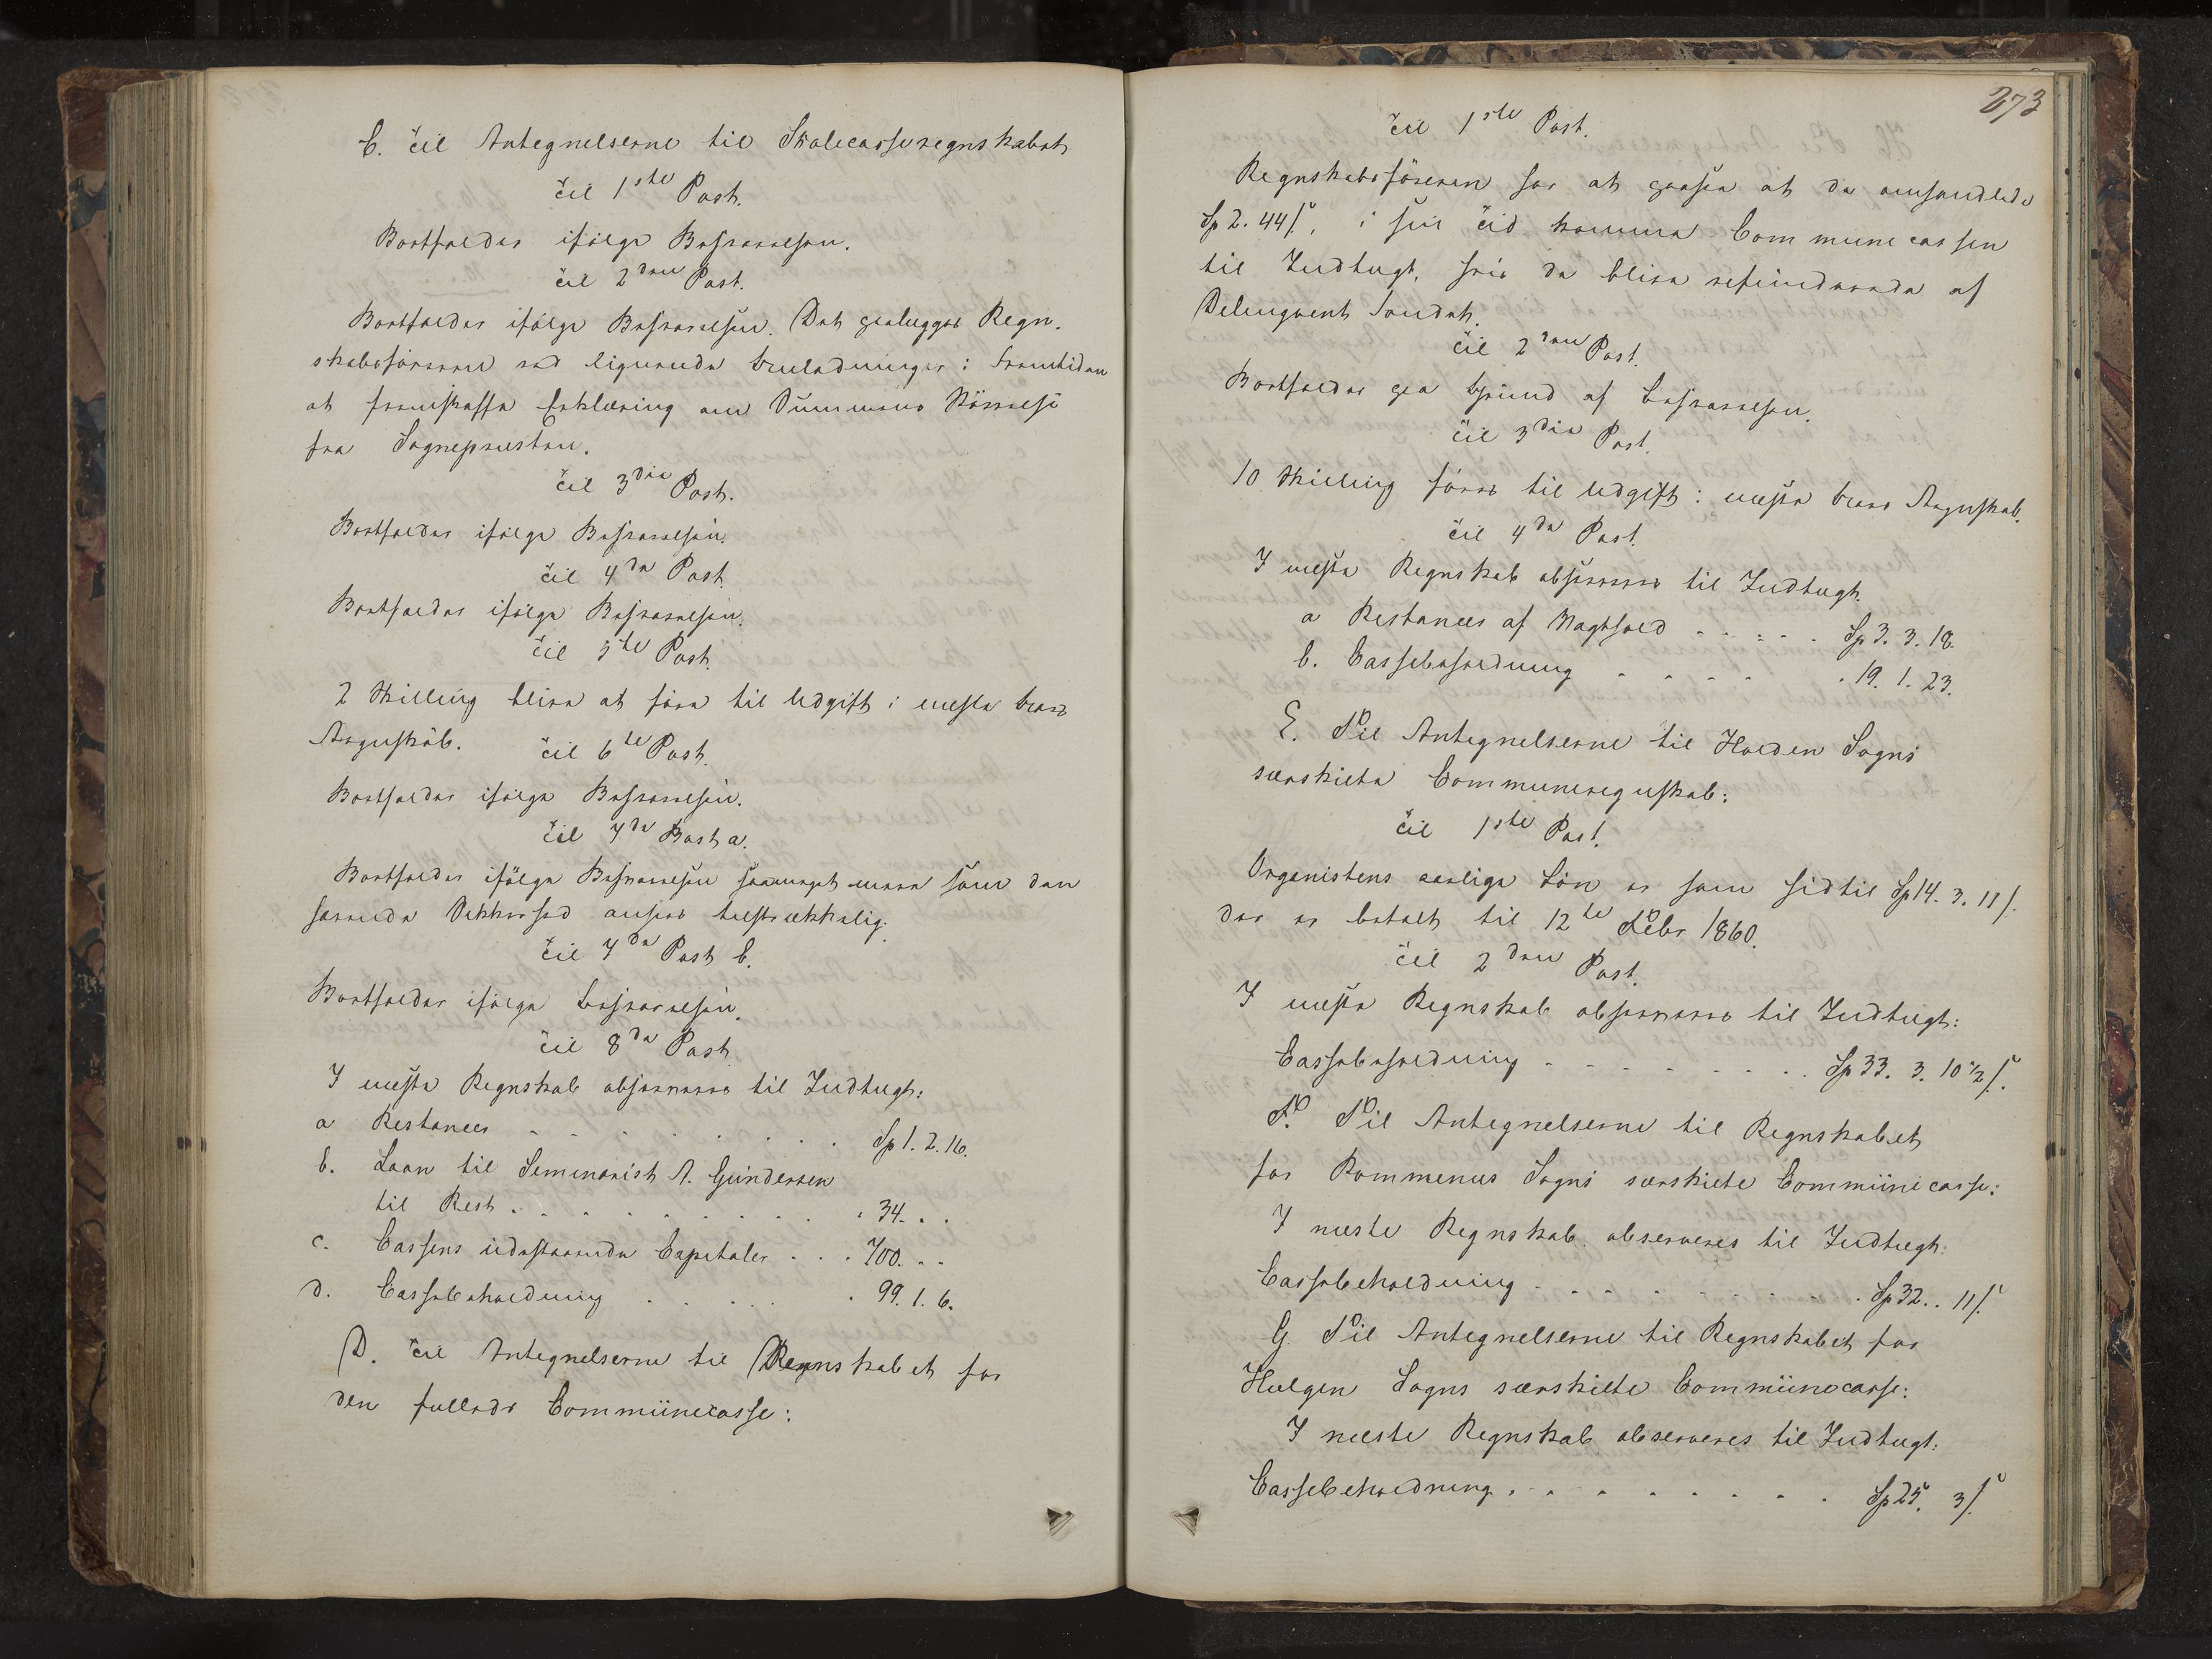 C. Til Antegnelserne til Skolecasseregnskabet
Til 1ste Post.
Bortfalder ifølge Besvarelsen.
Til 2den Post.
Bortfalder ifølge Besvarelsen. Det paalægges Regn-
skabsføreren ved lignende Anledninger i Fremtiden
at fremskaffe Erklæring om Summens Størrelse
fra Sognepræsten.
Til 3die Post.
Bortfalder ifølge Besvarelsen.
Til 4de Post.
Bortfalder ifølge Besvarelsen.
Til 5te Post.
2 Skilling bliver at føre til Udgift i næste Aars
Regnskab.
Til 6te Post.
Bortfalder ifølge Besvarelsen.
Til 7de Post a.
Bortfalder ifølge Besvarelsen saameget mere som den
havende Sikkerhed ansees tilstrækkelig.
Til 7de Post b.
Bortfalder ifølge Besvarelsen.
Til 8de Post
I næste Regnskab observeres til Indtægt:
a Restancer . . . . . . . . Sp 1. 2. 16.
b. Laan til Seminarist A. Gundersen
til Rest . . . . . . . . . " 34. " "
c. Cassens udestaaende Capitaler . . . 700. " "
d. Cassebeholdning . . . . . . 99. 1. 6.
D. Til Antegnelserne til Regnskabet for
den fælleds Communecasse:
273
Til 1ste Post.
Regnskabsføreren har at paasee at de omhandlede
Sp 2. 44 s, i sin Tid komme Communecassen
til Indtægt, hvis de blive refunderede af
Delinqvent Fondet.
Til 2den Post.
Bortfalder paa Grund af Besvarelsen.
Til 3die Post.
10 Skilling føres til Udgift i næste Aars Regnskab.
Til 4de Post.
I næste Regnskab observeres til Indtægt.
a Restancer af Vagthold . . . . . Sp 3. 3. 18.
b. Cassebeholdning . . . . . " 19. 1. 23.
E. Til Antegnelserne til Holden Sogns
særskilte Communeregnskab:
Til 1ste Post.
Organistens aarlige Løn er som hidtil Sp 14. 3. 11 s.
der er betalt til 12te Febr 1860.
Til 2den Post.
I næste Regnskab observeres til Indtægt:
Cassebeholdning . . . . . . . . Sp 33. 3. 10 1/2 s.
F. Til Antegnelserne til Regnskabet
for Rommenæs Sogns særskilte Communecasse:
I næste Regnskab observeres til Indtægt:
Cassebeholdning . . . . . . . . . Sp 32. " 11 s.
G. Til Antegnelserne til Regnskabet for
Helgen Sogns særskilte Communecasse:
I næste Regnskab observeres til Indtægt:
Cassebeholdning . . . . . . . . Sp 25. 3 s.